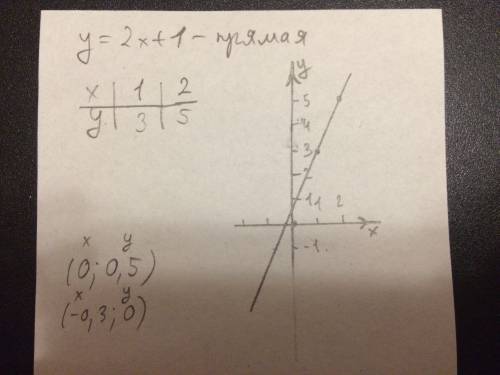 y = 2x+1 - прямая
x | 1 | 2
y | 3 | 5
y
5
4
3
2
1 1 2
x
-1
x y
(0; 0,5)
x y
(-0,3; 0)